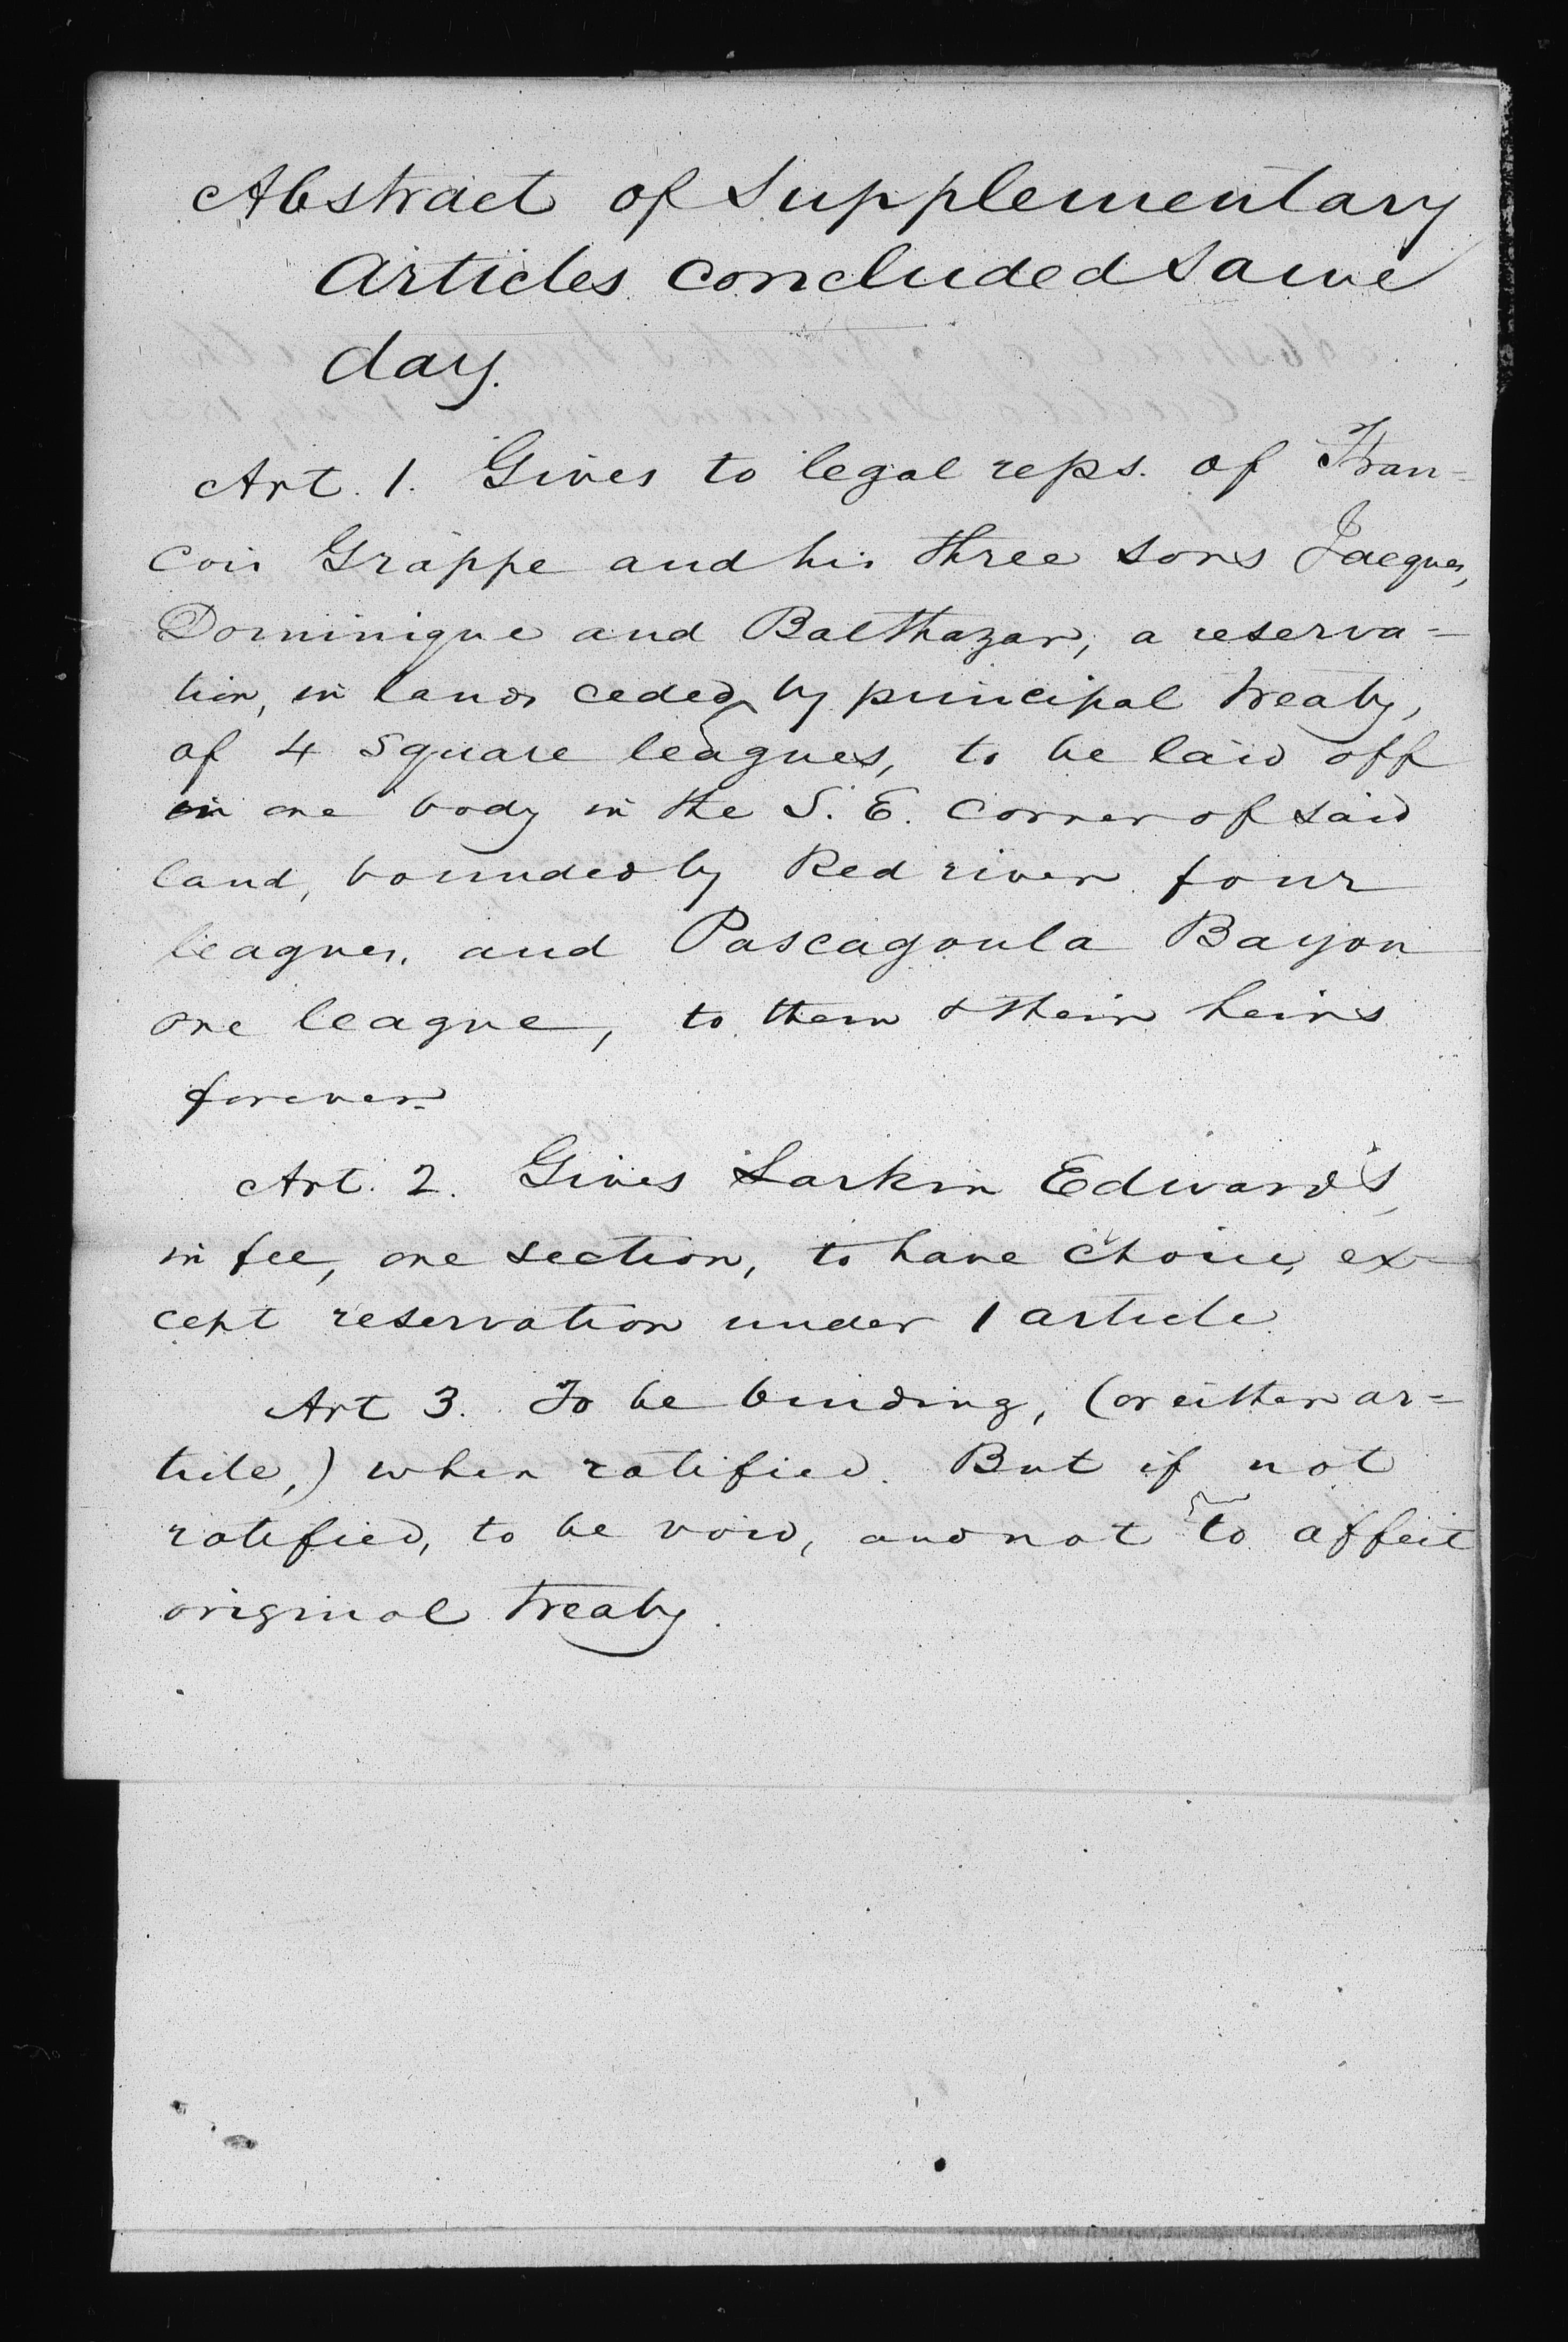 Abstract of Supplementary
Articles concluded same
day.
Art. 1. Gives to legal reps. of Fran=
cois Grappe and his three sons Jacques,
Dominique and Balthazar, a reserva=
tion, in lands ceded by principal treaty,
of 4 square leagues, to be laid off
in one body in the S. E. corner of said
land, bounded by Red river four
leagues, and Pascagoula Bayou
one league, to them & their heirs
forever.
Art. 2. Gives Larkin Edward's,
in fee, one section, to have choice, ex-
cept reservation under 1 article.
Art 3. To be binding, (or either ar=
ticle,) when ratified. But if not
ratified, to be void, and not to affect
original treaty.